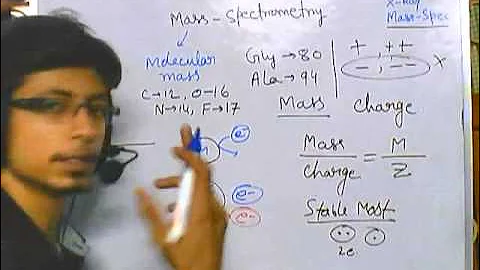 Mass-Spectrometry
X-Ray
Mass-Spec
Molecular
mass
C→12, O→16
N→14, F→17
Gly→80
Ala→94
+ , ++
- , -- X
Mass Charge
Mass = M
Charge Z
Stable Most
2e
e-
e-
e-